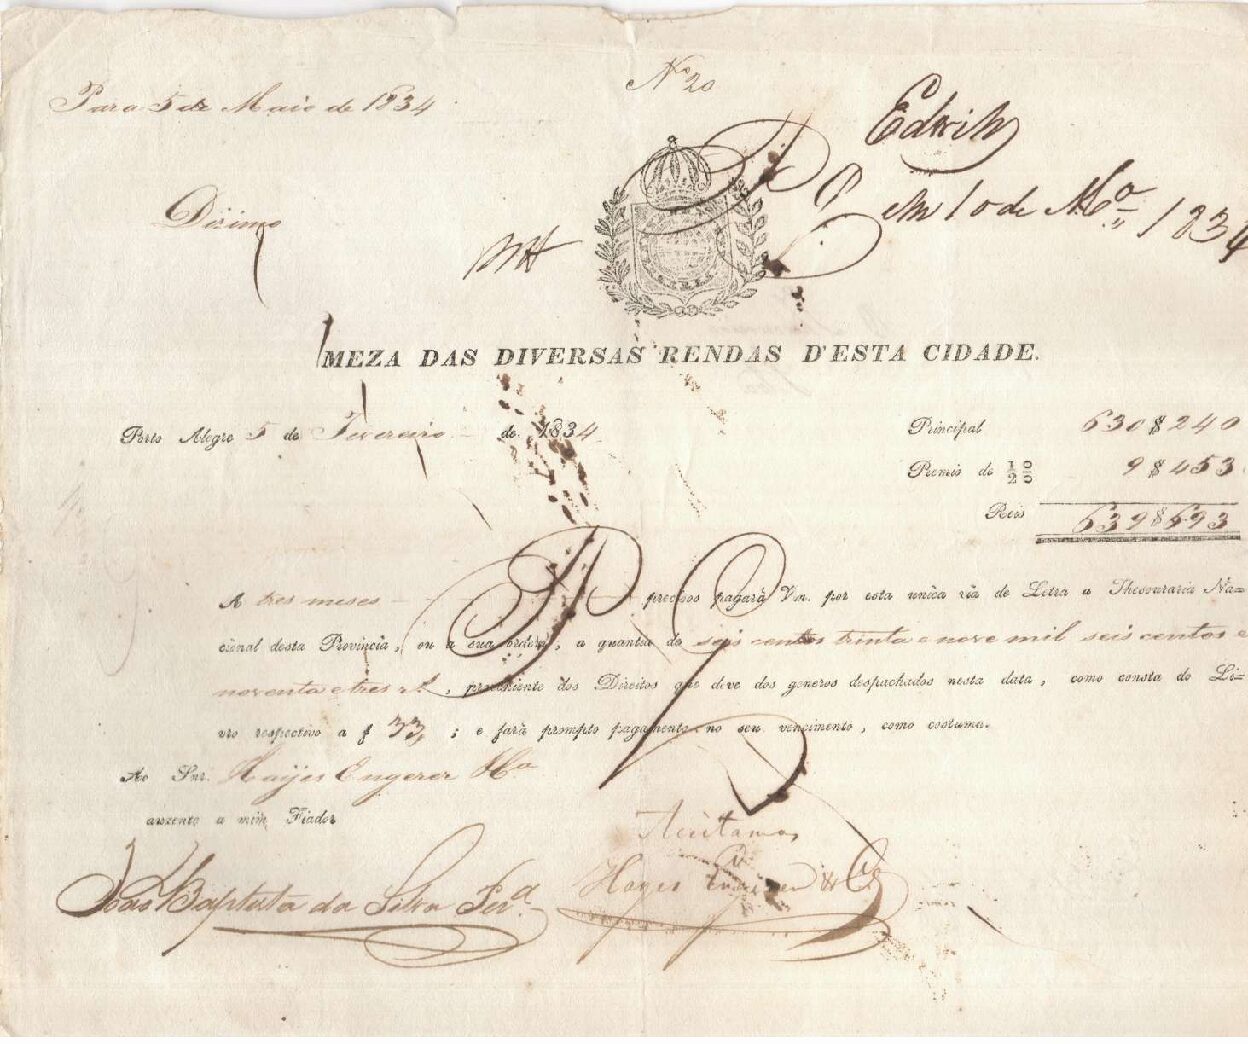 Nº 20
Para 5 de Maio de 1834
Edwih
Dizimo
em 10 de Mº 1834
MEZA DAS DIVERSAS RENDAS D'ESTA CIDADE.
Porto Alegre 5 de Fevereiro de 1834
Principal 630$240
Premio de 1/2 0/0 9$453
Reis 639$693
A tres mezes precizos pagará Vm. por esta unica via de Letra a Thesouraria Na=
cional desta Provincia, ou a sua ordem, a quantia de seis centos trinta e nove mil seis centos e
noventa e tres rs, proveniente dos Direitos que deve dos generos despachados nesta data, como consta do Li=
vro respectivo a f 33; e fará prompto pagamento no seu vencimento, como costuma.
Ao Snr. Hayes Engerer & Ca
auzente a mim Fiador
Aceitamos
João Baptista da Silva Per.ª
Hayes Engerer & Cª